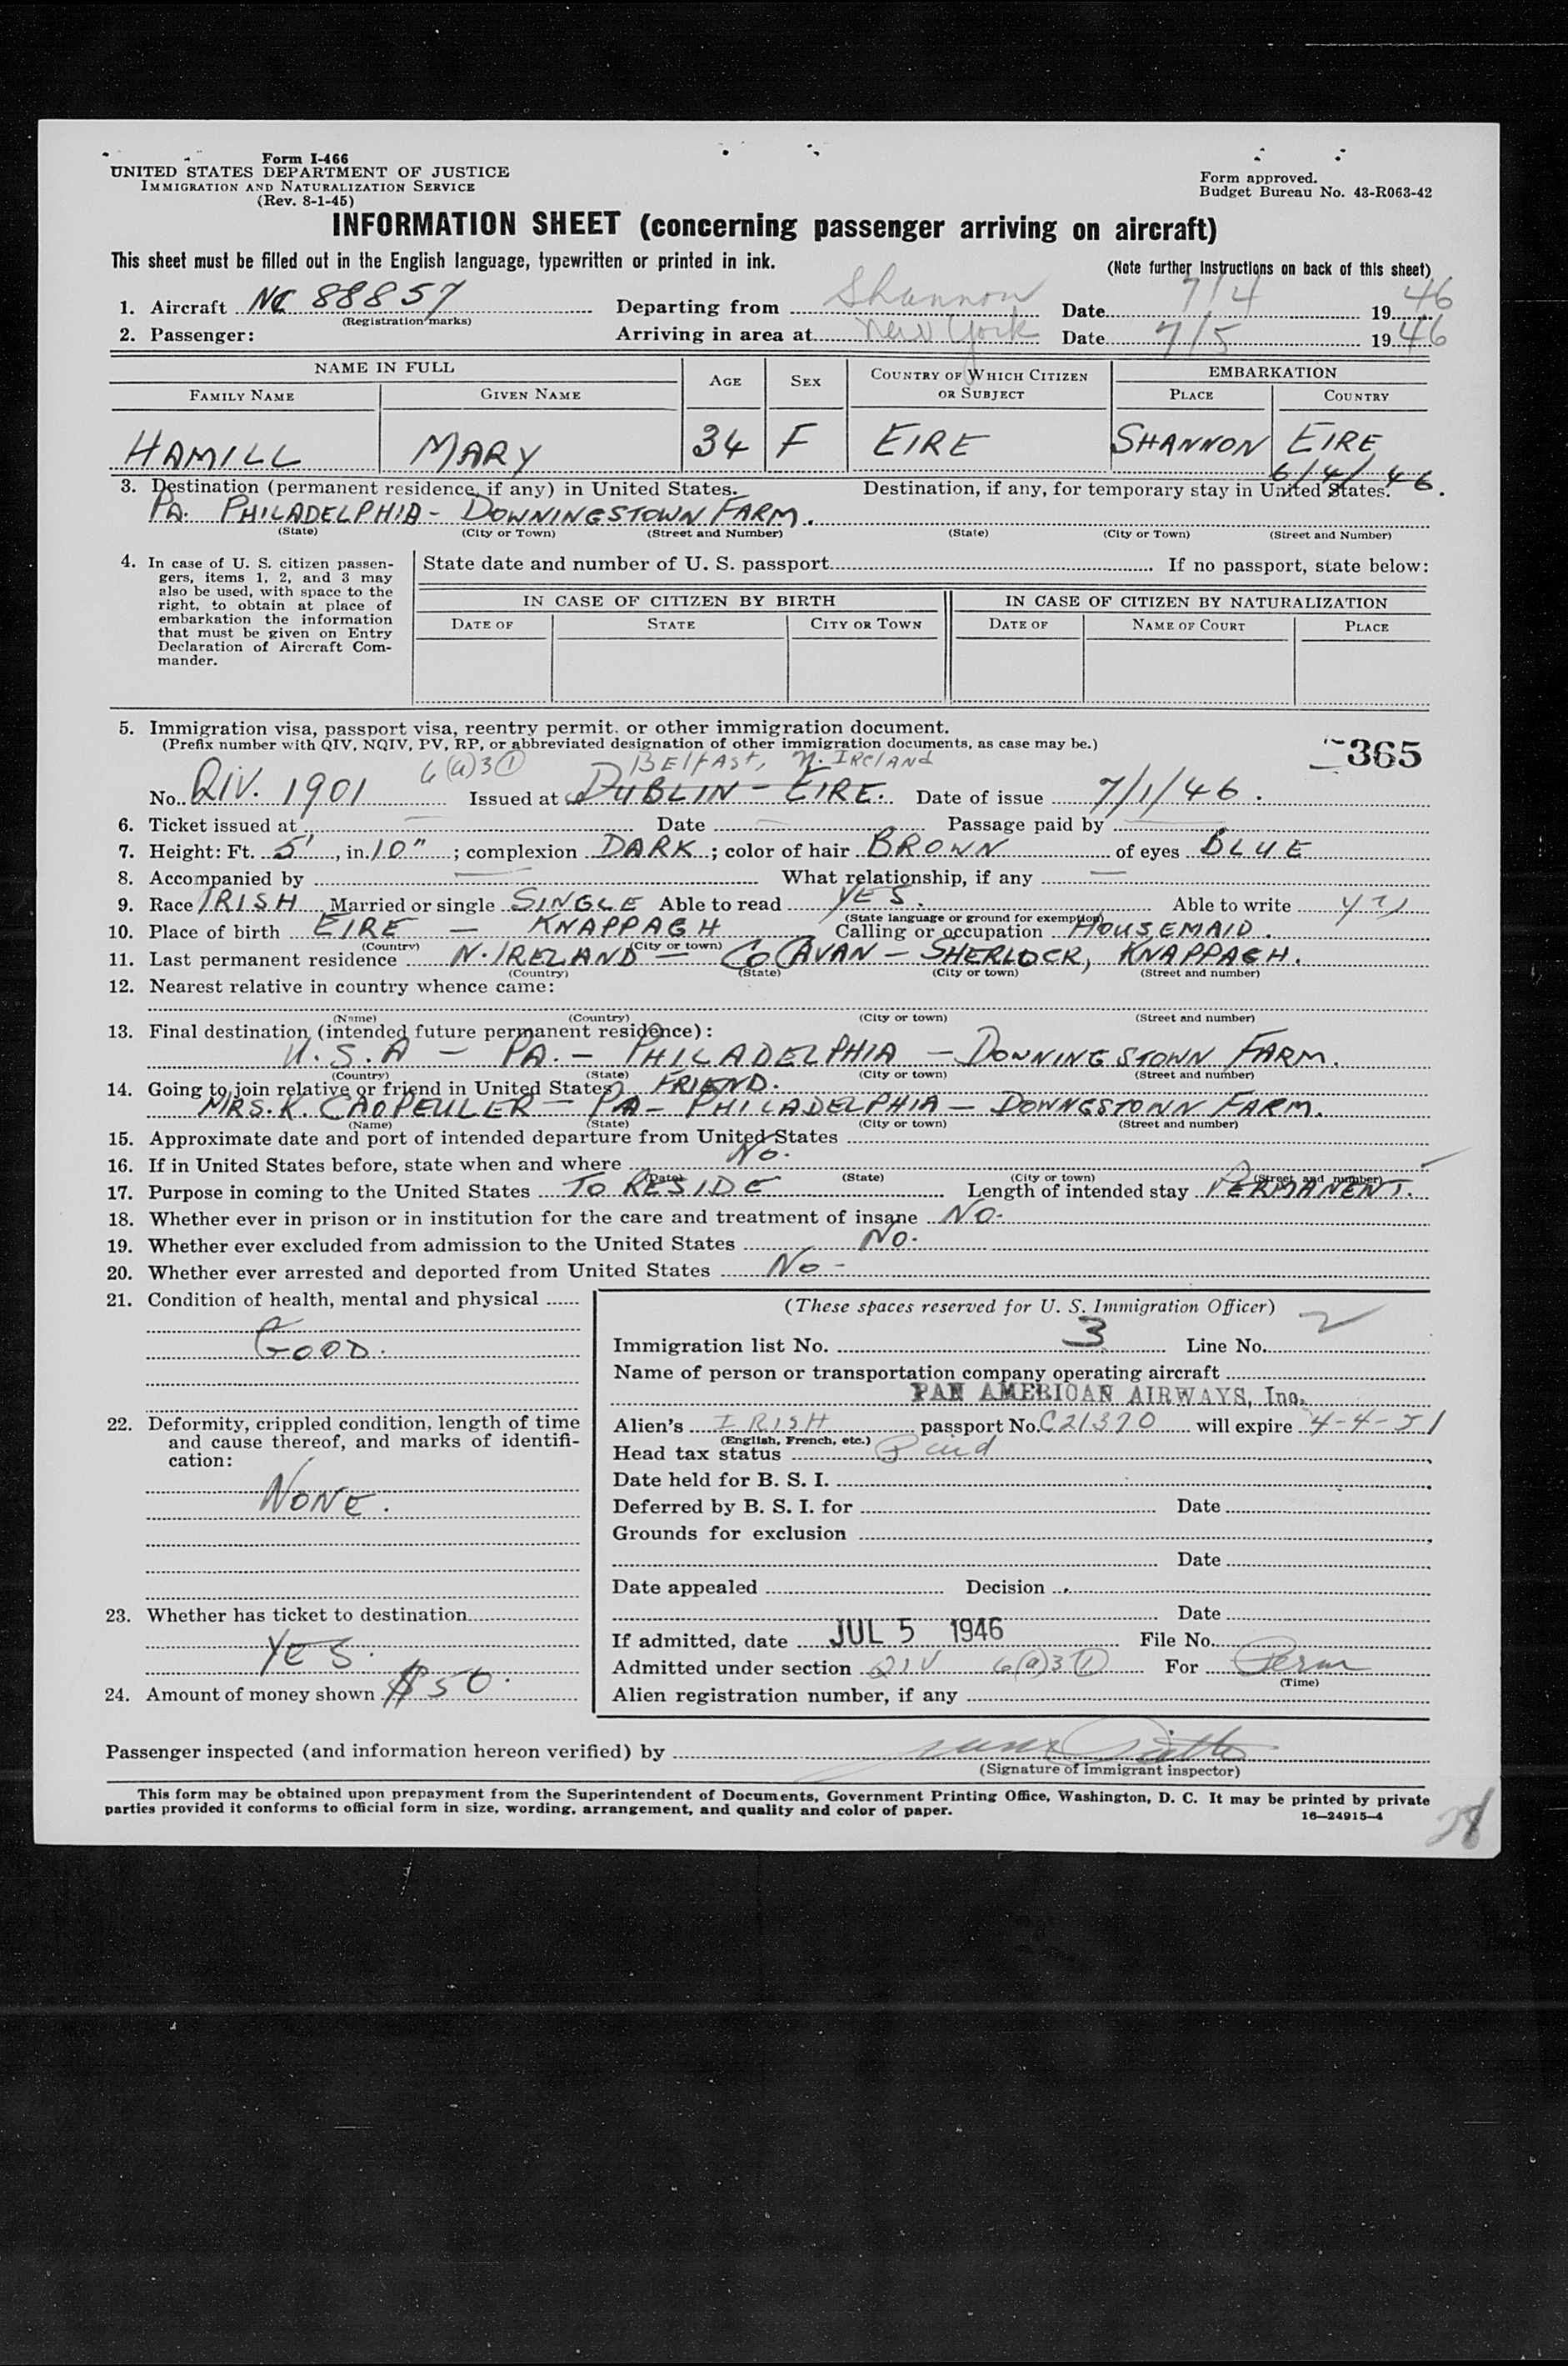 Form I-466
UNITED STATES DEPARTMENT OF JUSTICE
IMMIGRATION AND NATURALIZATION SERVICE
(Rev. 8-1-45)
Form approved.
Budget Bureau No. 43-R063-42
INFORMATION SHEET (concerning passenger arriving on aircraft)
This sheet must be filled out in the English language, typewritten or printed in ink.
(Note further instructions on back of this sheet)
1. Aircraft NC 88857 Departing from Shannon Date 7/4 1946
(Registration marks)
2. Passenger: Arriving in area at New York Date 7/5 1946
NAME IN FULL AGE SEX COUNTRY OF WHICH CITIZEN OR SUBJECT EMBARKATION
FAMILY NAME GIVEN NAME PLACE COUNTRY
HAMILL MARY 34 F EIRE SHANNON EIRE
6/4/46.
3. Destination (permanent residence, if any) in United States. Destination, if any, for temporary stay in United States.
PA. PHILADELPHIA - DOWNINGSTOWN FARM.
(State) (City or Town) (Street and Number) (State) (City or Town) (Street and Number)
4. In case of U. S. citizen passengers, items 1, 2, and 3 may also be used, with space to the right, to obtain at place of embarkation the information that must be given on Entry Declaration of Aircraft Commander.
State date and number of U. S. passport If no passport, state below:
IN CASE OF CITIZEN BY BIRTH IN CASE OF CITIZEN BY NATURALIZATION
DATE OF STATE CITY OR TOWN DATE OF NAME OF COURT PLACE
5. Immigration visa, passport visa, reentry permit, or other immigration document.
(Prefix number with QIV, NQIV, PV, RP, or abbreviated designation of other immigration documents, as case may be.)
365
6(a)3(1) Belfast, N. Ireland
No. QIV. 1901 Issued at DUBLIN - EIRE. Date of issue 7/1/46.
6. Ticket issued at Date Passage paid by
7. Height: Ft. 5', in. 10"; complexion DARK; color of hair BROWN of eyes BLUE
8. Accompanied by What relationship, if any
9. Race IRISH Married or single SINGLE Able to read YES. Able to write yes
(State language or ground for exemption)
10. Place of birth EIRE - KNAPPAGH Calling or occupation HOUSEMAID.
(Country) (City or town)
11. Last permanent residence N. IRELAND - CO CAVAN - SHERLOCK, KNAPPAGH.
(Country) (State) (City or town) (Street and number)
12. Nearest relative in country whence came:
(Name) (Country) (City or town) (Street and number)
13. Final destination (intended future permanent residence):
U.S.A - PA. - PHILADELPHIA - DOWNINGSTOWN FARM.
(Country) (State) (City or town) (Street and number)
14. Going to join relative or friend in United States FRIEND.
MRS. K. - PA - PHILADELPHIA - DOWNGSTOWN FARM.
(Name) (State) (City or town) (Street and number)
15. Approximate date and port of intended departure from United States
16. If in United States before, state when and where No.
(Date) (State) (City or town) (Street and number)
17. Purpose in coming to the United States TO RESIDE Length of intended stay PERMANENT.
18. Whether ever in prison or in institution for the care and treatment of insane NO.
19. Whether ever excluded from admission to the United States No.
20. Whether ever arrested and deported from United States No -
21. Condition of health, mental and physical
GOOD.
22. Deformity, crippled condition, length of time and cause thereof, and marks of identification:
NONE.
23. Whether has ticket to destination
YES.
24. Amount of money shown $50.
(These spaces reserved for U. S. Immigration Officer)
Immigration list No. 3 Line No. 2
Name of person or transportation company operating aircraft
PAN AMERICAN AIRWAYS, Inc.
Alien's IRISH passport No. C21370 will expire 4-4-51
(English, French, etc.)
Head tax status Paid
Date held for B. S. I.
Deferred by B. S. I. for Date
Grounds for exclusion
Date
Date appealed Decision
Date
If admitted, date JUL 5 1946 File No.
Admitted under section QIV 6(a)3(1) For Perm
(Time)
Alien registration number, if any
Passenger inspected (and information hereon verified) by
(Signature of immigrant inspector)
This form may be obtained upon prepayment from the Superintendent of Documents, Government Printing Office, Washington, D. C. It may be printed by private
parties provided it conforms to official form in size, wording, arrangement, and quality and color of paper.
16—24915-4